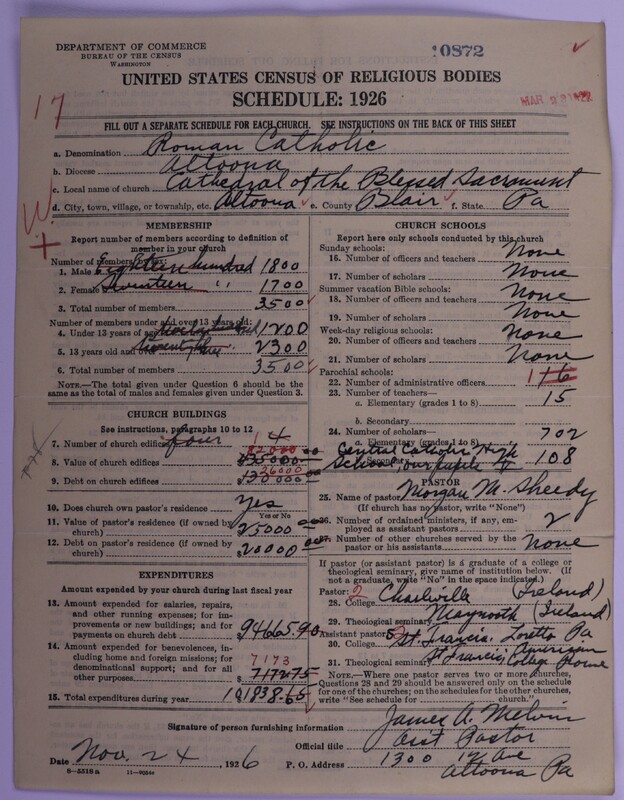 DEPARTMENT OF COMMERCE
BUREAU OF THE CENSUS
WASHINGTON
10872
UNITED STATES CENSUS OF RELIGIOUS BODIES
SCHEDULE: 1926
17
FILL OUT A SEPARATE SCHEDULE FOR EACH CHURCH. SEE INSTRUCTIONS ON THE BACK OF THIS SHEET
a. Denomination Roman Catholic
b. Diocese Altoona
c. Local name of church Cathedral of the Blessed Sacrament
d. City, town, village, or township, etc. Altoona e. County Blair f. State Pa
MEMBERSHIP
Report number of members according to definition of
member in your church
Number of members by sex:
1. Male Eighteen hundred 1800
2. Female Seventeen " 1700
3. Total number of members 3500
Number of members under and over 13 years old:
4. Under 13 years of age 1200
5. 13 years old and 2300
6. Total number of members 3500
NOTE.—The total given under Question 6 should be the
same as the total of males and females given under Question 3.
CHURCH BUILDINGS
See instructions, paragraphs 10 to 12
7. Number of church edifices four 1 4
8. Value of church edifices $435000.00
9. Debt on church edifices 26000 $130000.00
10. Does church own pastor's residence? yes
Yes or No
11. Value of pastor's residence (if owned by
church) $25000.00
12. Debt on pastor's residence (if owned by
church) $20000.00
EXPENDITURES
Amount expended by your church during last fiscal year
13. Amount expended for salaries, repairs,
and other running expenses; for im-
provements or new buildings; and for
payments on church debt 94665.90
14. Amount expended for benevolences, in-
cluding home and foreign missions; for
denominational support; and for all
other purposes 7173 $ 7172.75
15. Total expenditures during year 101838.65
CHURCH SCHOOLS
Report here only schools conducted by this church
Sunday schools:
16. Number of officers and teachers None
17. Number of scholars None
Summer vacation Bible schools:
18. Number of officers and teachers None
19. Number of scholars None
Week-day religious schools:
20. Number of officers and teachers None
21. Number of scholars None
Parochial schools:
22. Number of administrative officers 1
23. Number of teachers—
a. Elementary (grades 1 to 8) 15
b. Secondary
24. Number of scholars—
a. Elementary (grades 1 to 8) 702
Central Catholic High
School, our pupils 108
PASTOR
25. Name of pastor Morgan M. Sheedy
(If church has no pastor, write "None")
26. Number of ordained ministers, if any, em-
ployed as assistant pastors 2
27. Number of other churches served by the
pastor or his assistants None
If pastor (or assistant pastor) is a graduate of a college or
theological seminary, give name of institution below. (If
not a graduate, write "No" in the space indicated.)
Pastor: 2
28. College Charlville (Ireland)
29. Theological seminary Maynooth (Ireland)
Assistant pastor:
30. College St. Francis, Loretto Pa
31. Theological seminary St Francis, American College Rome
NOTE.—Where one pastor serves two or more churches,
Questions 28 and 29 should be answered only on the schedule
for one of the churches; on the schedules for the other churches,
write "See schedule for church."
Signature of person furnishing information James A. Melvin
Official title Asst Pastor
Date Nov. 24, 1926 P. O. Address 1300 12 Ave
Altoona Pa
8—5518a 11—9024